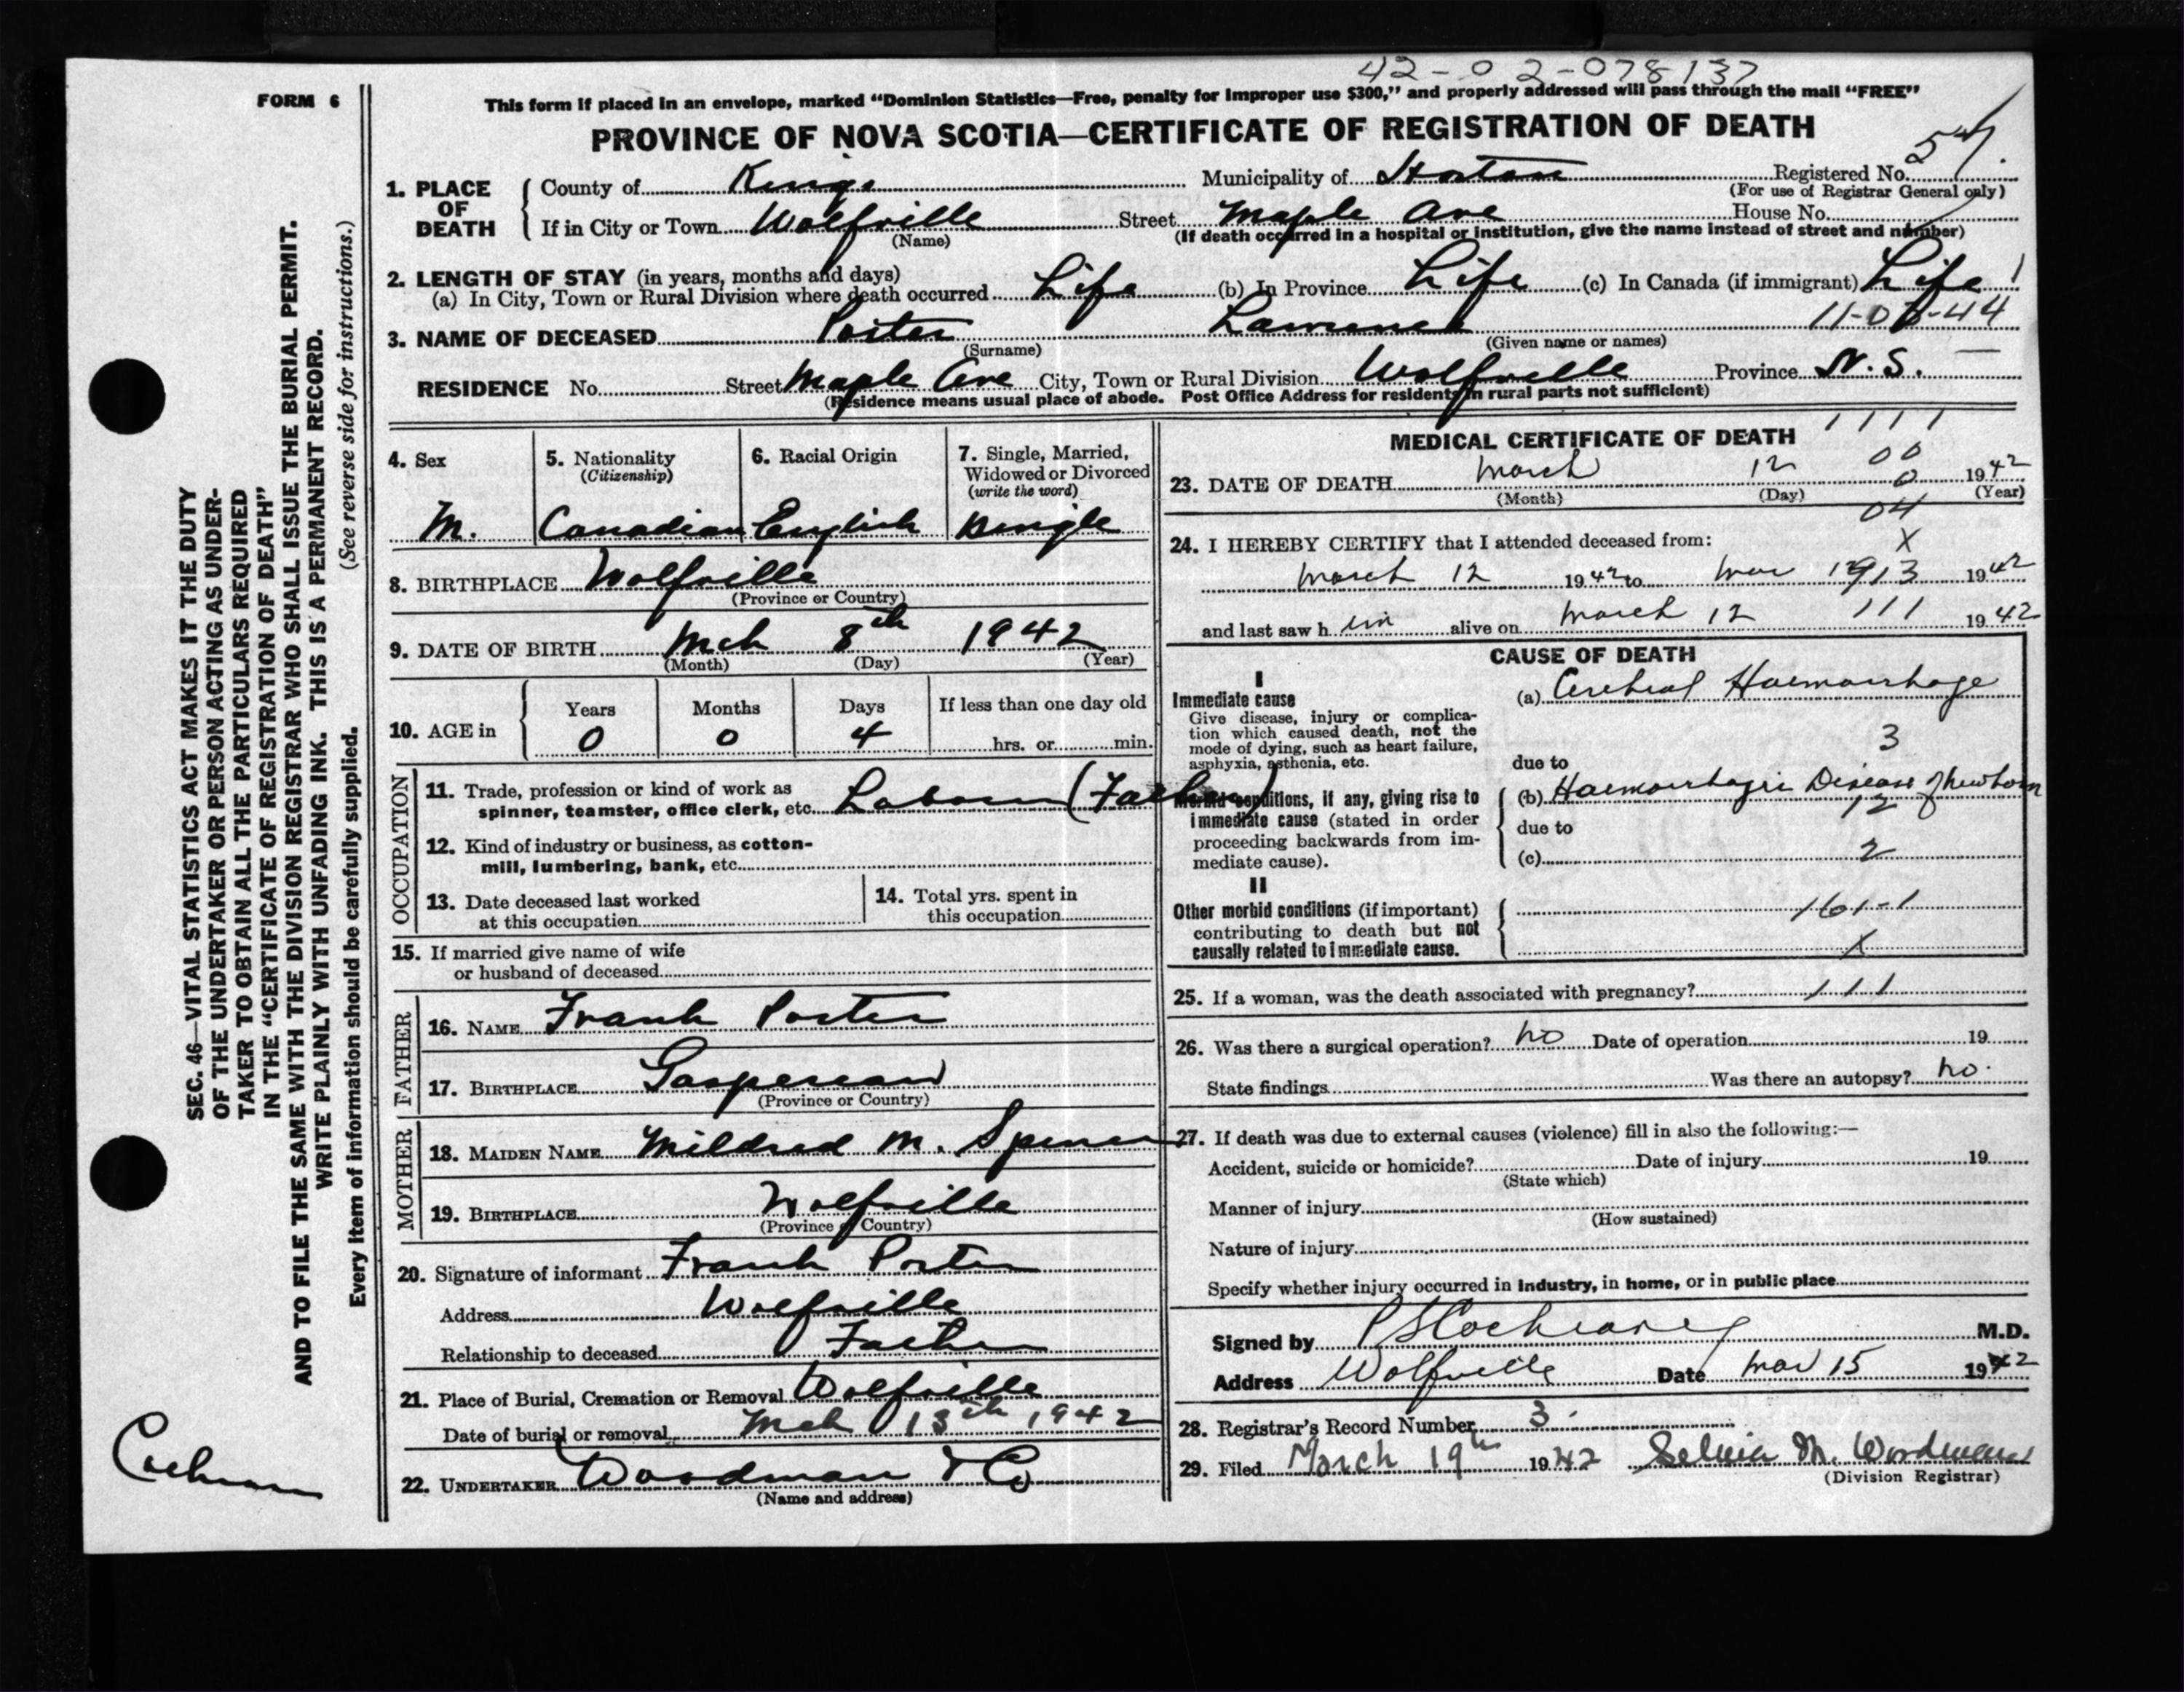 42-02-078137
FORM 6
This form if placed in an envelope, marked "Dominion Statistics—Free, penalty for improper use $300," and properly addressed will pass through the mail "FREE"
PROVINCE OF NOVA SCOTIA—CERTIFICATE OF REGISTRATION OF DEATH
1. PLACE OF DEATH
County of Kings Municipality of Horton Registered No.
(For use of Registrar General only)
If in City or Town Wolfville Street Maple Ave House No.
(Name) (If death occurred in a hospital or institution, give the name instead of street and number)
2. LENGTH OF STAY (in years, months and days)
(a) In City, Town or Rural Division where death occurred Life (b) In Province Life (c) In Canada (if immigrant) Life 1
3. NAME OF DECEASED Porter Lawrence
(Surname) (Given name or names)
RESIDENCE No. Street Maple Ave City, Town or Rural Division Wolfville Province N.S.
(Residence means usual place of abode. Post Office Address for residents in rural parts not sufficient)
4. Sex
M.
5. Nationality
(Citizenship)
Canadian
6. Racial Origin
English
7. Single, Married,
Widowed or Divorced
(write the word)
Single
8. BIRTHPLACE Wolfville
(Province or Country)
9. DATE OF BIRTH Mch 8th 1942
(Month) (Day) (Year)
10. AGE in
Years Months Days If less than one day old
0 0 4 hrs. or min.
OCCUPATION
11. Trade, profession or kind of work as
spinner, teamster, office clerk, etc. Laborer (Father)
12. Kind of industry or business, as cotton-
mill, lumbering, bank, etc.
13. Date deceased last worked
at this occupation
14. Total yrs. spent in
this occupation
15. If married give name of wife
or husband of deceased
FATHER
16. NAME Frank Porter
17. BIRTHPLACE Gaspereau
(Province or Country)
MOTHER
18. MAIDEN NAME Mildred M. Spencer
19. BIRTHPLACE Wolfville
(Province or Country)
20. Signature of informant Frank Porter
Address Wolfville
Relationship to deceased Father
21. Place of Burial, Cremation or Removal Wolfville
Date of burial or removal Mch 13th 1942
22. UNDERTAKER Woodman & Co
(Name and address)
MEDICAL CERTIFICATE OF DEATH
1111
00
23. DATE OF DEATH March 12 0 1942
(Month) (Day) (Year)
04
24. I HEREBY CERTIFY that I attended deceased from: X
March 12 1942 to Mar 1942
and last saw h im alive on March 12 111 1942
CAUSE OF DEATH
I
Immediate cause
Give disease, injury or complica-
tion which caused death, not the
mode of dying, such as heart failure,
asphyxia, asthenia, etc.
(a) Cerebral Haemorrhage
3
due to
Morbid conditions, if any, giving rise to
immediate cause (stated in order
proceeding backwards from im-
mediate cause).
(b) Haemorrhagic Disease of Newborn
12
due to
(c) 2
II
Other morbid conditions (if important)
contributing to death but not
causally related to immediate cause.
161-1
X
25. If a woman, was the death associated with pregnancy? 111
26. Was there a surgical operation? no Date of operation 19
State findings Was there an autopsy? no.
27. If death was due to external causes (violence) fill in also the following:—
Accident, suicide or homicide? Date of injury 19
(State which)
Manner of injury
(How sustained)
Nature of injury
Specify whether injury occurred in industry, in home, or in public place
Signed by Cochrane M.D.
Address Wolfville Date Mar 15 1942
28. Registrar's Record Number 3.
29. Filed March 19th 1942 M. Woodman
(Division Registrar)
SEC. 46—VITAL STATISTICS ACT MAKES IT THE DUTY
OF THE UNDERTAKER OR PERSON ACTING AS UNDER-
TAKER TO OBTAIN ALL THE PARTICULARS REQUIRED
IN THE "CERTIFICATE OF REGISTRATION OF DEATH"
AND TO FILE THE SAME WITH THE DIVISION REGISTRAR WHO SHALL ISSUE THE BURIAL PERMIT.
WRITE PLAINLY WITH UNFADING INK. THIS IS A PERMANENT RECORD.
(See reverse side for instructions.)
Every item of information should be carefully supplied.